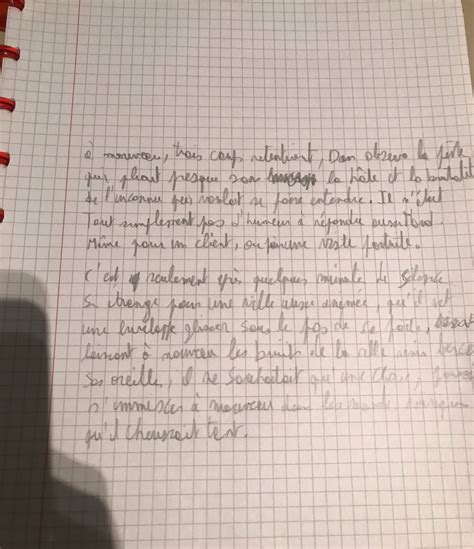 à nouveau, trois coup retentirent, Dan observa la porte
qui pliait presque sous la hâte et la
de l'inconnu qui voulait se faire entendre. Il n'était
Tout simplement pas d'humeur à répondre aussitôt.
Même pour un client, ou pour une visite
C'est seulement après quelques minute de silence
Si étrange pour une ville aussi animée, qu'il vit
une enveloppe glisser sous le pas de sa porte,
laissant à nouveau les bruits de la ville venir bercer
Ses oreille, il ne Souhaitait qu'une chose,
s'immiscer à nouveau dans
qu'il chérissait tant.